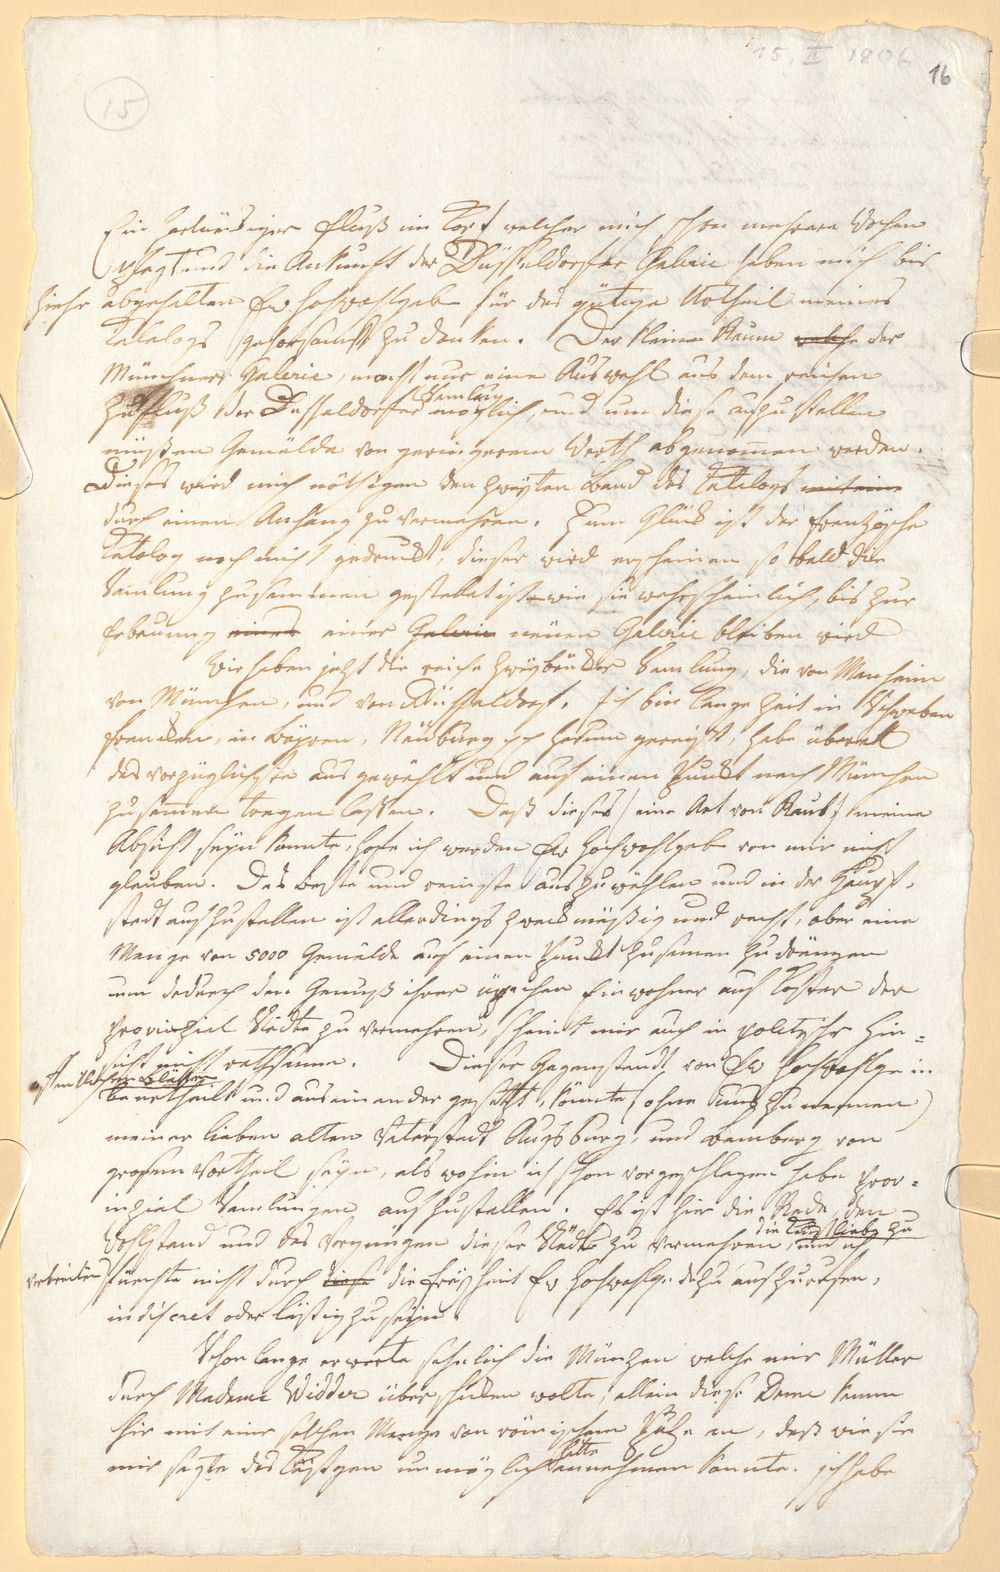 15. II 1806
16
15
Ein Fluß im Kopf welcher mich schon mehrere Wochen
plagt und die Ankunft der Düsseldorfer Galerie haben mich bis
hieher abgehalten Ew Hochwohlgeb für das gütige Urtheil meines
Catalogs gehorsamst zu danken. Der kleine Raum welche der
Münchner Galerie, macht nur eine Auswahl aus dem reichen
Zufluß der Dusseldorfer Samlung möglich, und um diese aufzustellen
müßen Gemälde von geringerem Werth abgenommen werden.
Dieses wird mich nöthigen den zweyten Band des Catalogs mit eine
durch einen Anhang zu vermehren. Zum Glück ist der französche
Catalog noch nicht gedruckt, dieser wird erscheinen so bald die
Samlung zusammen gestellet ist wie sie wahrscheinlich, bis zur
Erbauung eines einer Galerie neuen Galerie bleiben wird
Wir haben jetzt die reiche Zweybrücker Samlung, die von Manheim
von München, und von Düsseldorf. Ich bin lange Zeit in Schwaben
Franken, in Bayren, Neuburg herum gereist, habe überall
das vorzüglichste ausgewählt und auf einen Punkt nach München
zusammen tragen lassen. Daß dieses (eine Art von Raub) meine
Absicht seyn konnte, hofe ich werden Ew Hochwohlgeb von mir nicht
glauben. Das beste und reinste auszuwählen und in der Haupt-
stadt aufzustellen ist allerdings zweckmäßig und recht, aber eine
Menge von 5000 Gemälde auf einen Punckt zusamen zu drängen
um dadurch den Genuß ihrer Einwohner auf Kosten der
Provinzial Städte zu vermehren, scheint mir auch in politischer Hin=
sicht nicht rathsamm. Dieser Gegenstandt von Ew Hochwohlge in
öffentlichen Blätter
beurtheilt und auseinander gesetzt, könnte (ohne mich zu nennen)
meiner lieben alten Vaterstadt Augsburg, und Bamberg von
großem Vortheil seyn, als wohin ich schon vorgeschlagen habe prov=
inzial Samlungen aufzustellen. Es ist hier die Rede den
Wohlstand und das Vergnügen dieser Städte zu vermehren, die Kunstliebe zu
verbreiten und ich fürchte nicht durch diese die Freyheit Ew Hochwohlge dazu aufzurufen,
indiscret oder lästig zu seyn.
Schon lange erwarte sehnlich die Münzen welche mir Müller
durch Madame Widder überschicken wolte, allein diese Dame kamm
hir mit einer solchen Menge von römischem an, daß wie sie
mir sagte das unmöglich hätte annehmen konnte. ich habe